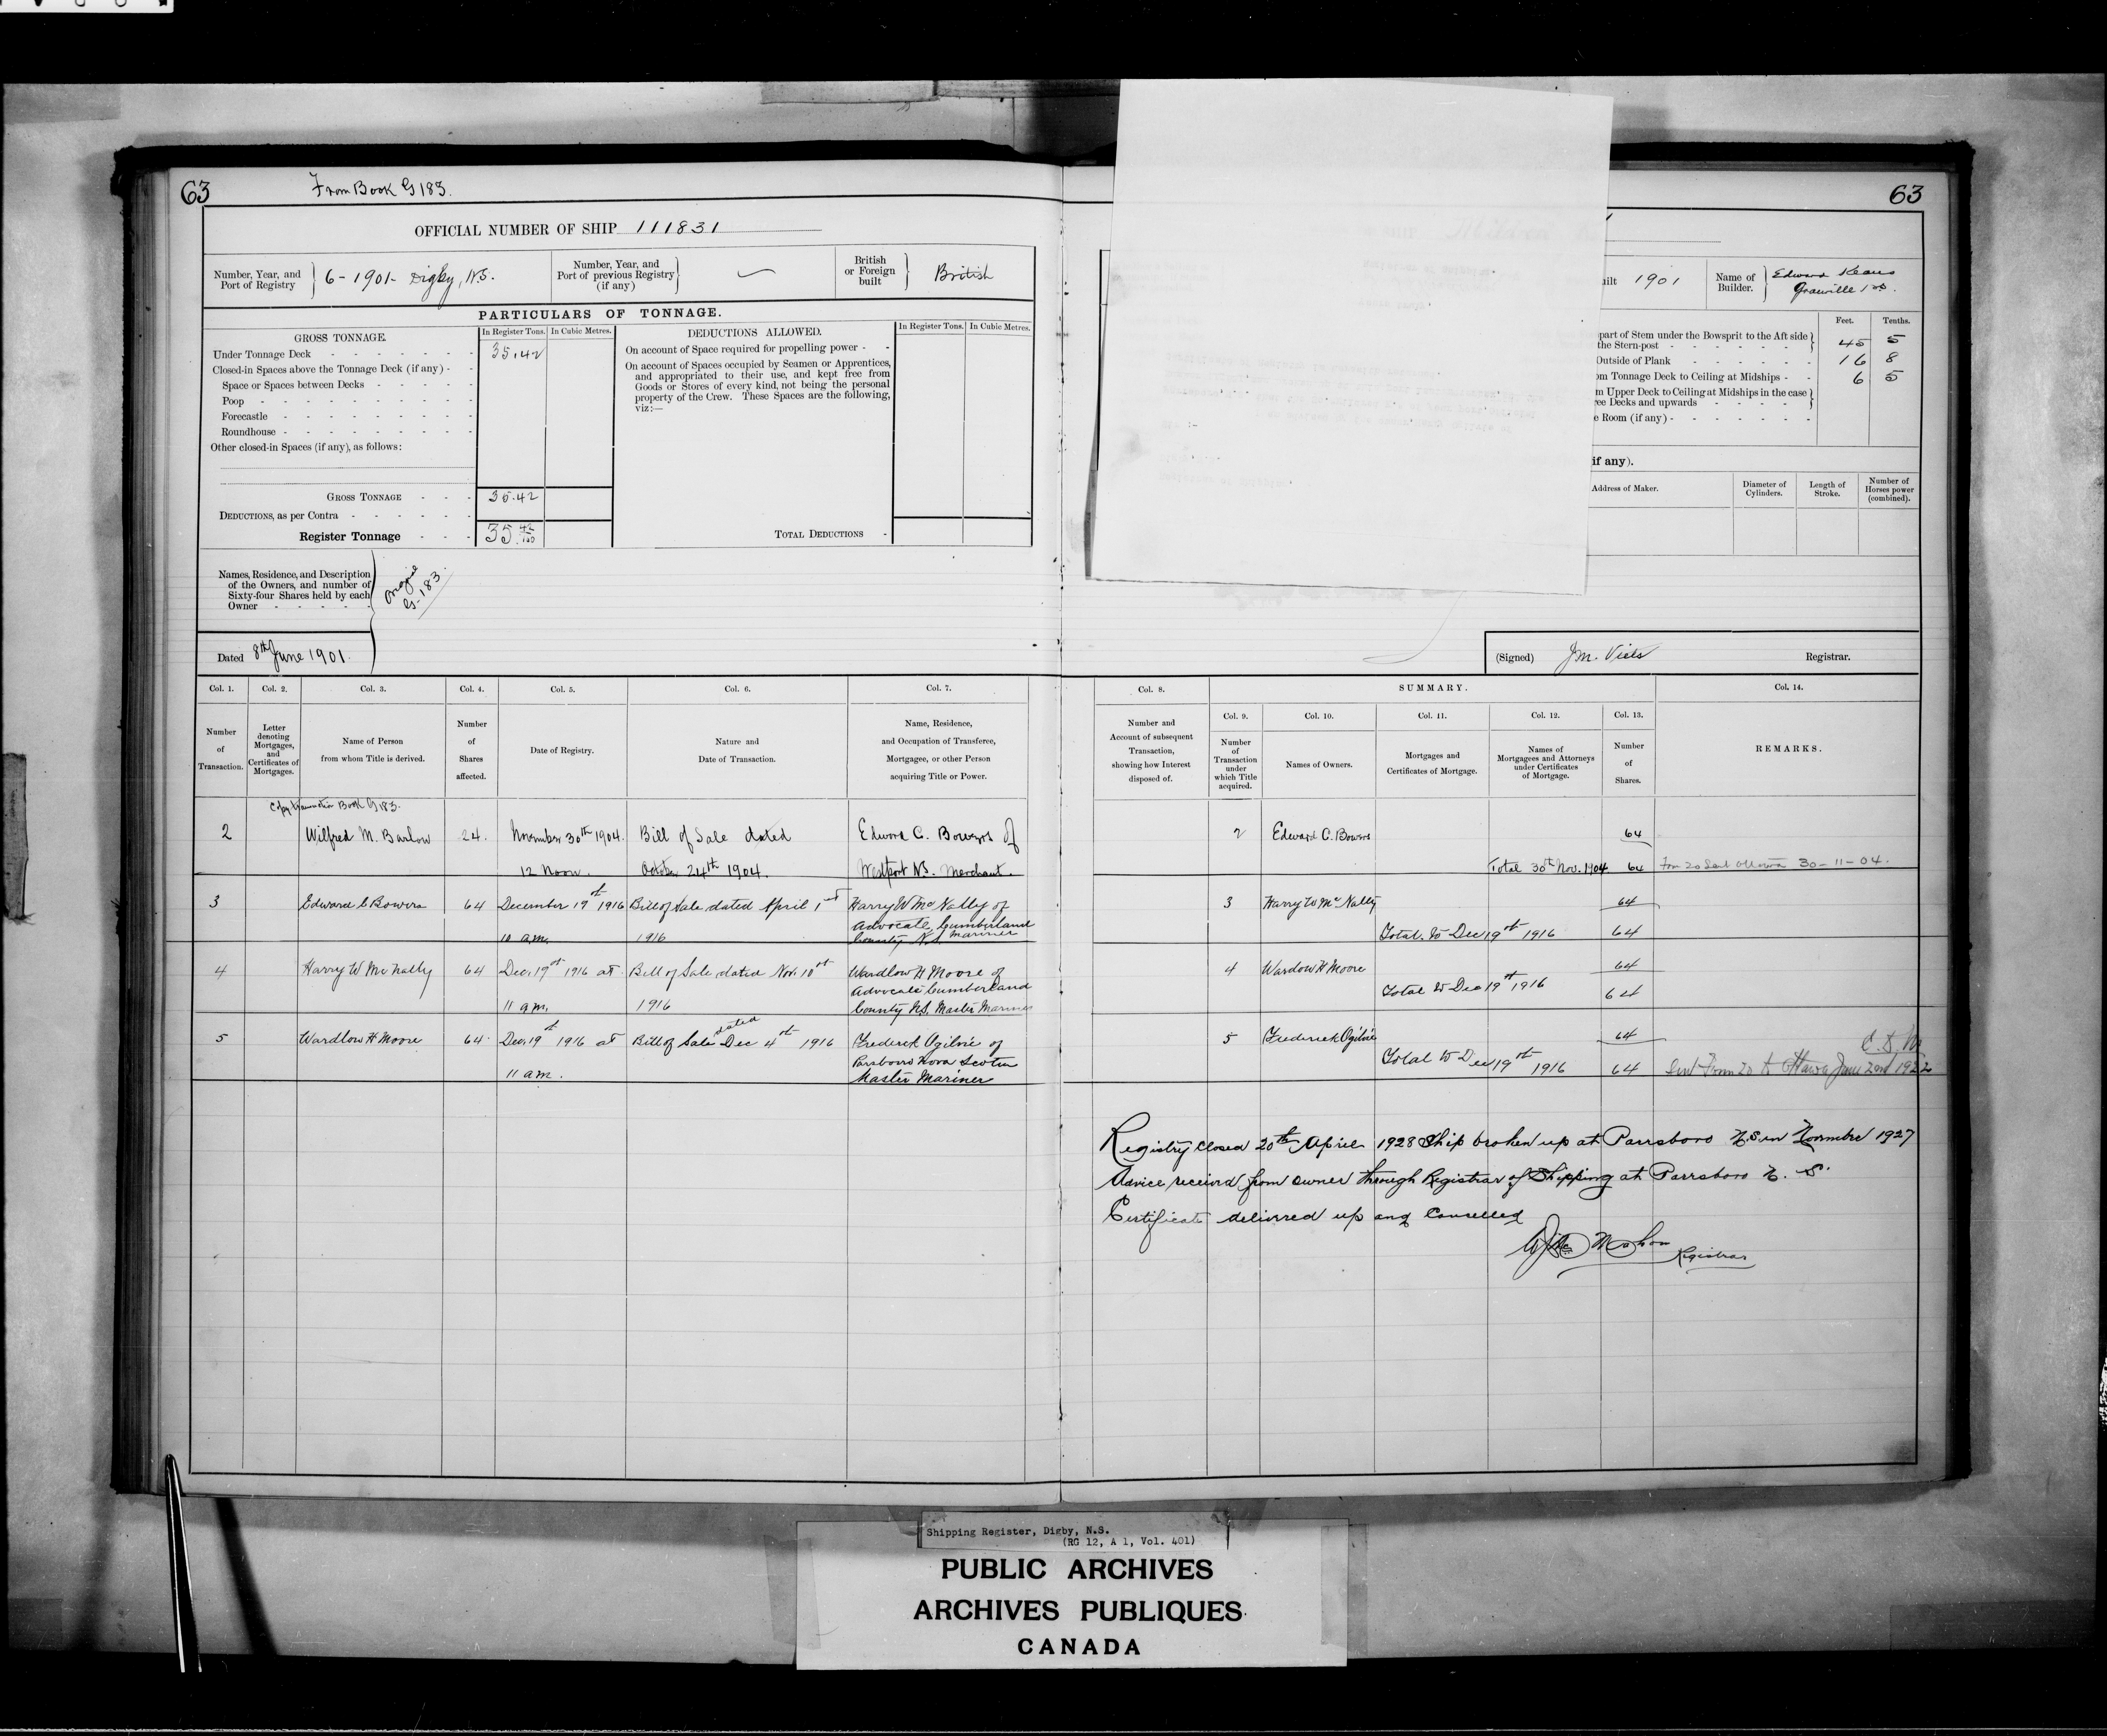 63 From Book G 183. 63
OFFICIAL NUMBER OF SHIP 111831
Number, Year, and Port of Registry 6-1901- Digby, N.S.
Number, Year, and Port of previous Registry (if any)
British or Foreign built British
PARTICULARS OF TONNAGE.
GROSS TONNAGE. In Register Tons. In Cubic Metres.
Under Tonnage Deck 35.42
Closed-in Spaces above the Tonnage Deck (if any)
Space or Spaces between Decks
Poop
Forecastle
Roundhouse
Other closed-in Spaces (if any), as follows:
GROSS TONNAGE 35.42
DEDUCTIONS, as per Contra
Register Tonnage 35 42/100
DEDUCTIONS ALLOWED. In Register Tons. In Cubic Metres.
On account of Space required for propelling power
On account of Spaces occupied by Seamen or Apprentices,
and appropriated to their use, and kept free from
Goods or Stores of every kind, not being the personal
property of the Crew. These Spaces are the following,
viz:—
TOTAL DEDUCTIONS
Names, Residence, and Description
of the Owners, and number of
Sixty-four Shares held by each
Owner
Original
G-183.
Dated 8th June 1901.
uilt 1901 Name of Builder. Edward
Granville
Feet. Tenths.
part of Stem under the Bowsprit to the Aft side
the Stern-post 45 5
Outside of Plank 16 8
om Tonnage Deck to Ceiling at Midships 6 5
m Upper Deck to Ceiling at Midships in the case
ree Decks and upwards
e Room (if any)
if any).
Address of Maker. Diameter of Cylinders. Length of Stroke. Number of Horses power (combined).
(Signed) J.M. Viets Registrar.
Col. 1. Col. 2. Col. 3. Col. 4. Col. 5. Col. 6. Col. 7.
Number of Transaction.
Letter denoting Mortgages, and Certificates of Mortgages.
Name of Person from whom Title is derived.
Number of Shares affected.
Date of Registry.
Nature and Date of Transaction.
Name, Residence, and Occupation of Transferee, Mortgagee, or other Person acquiring Title or Power.
Copy transaction Book G 183.
2 Wilfred M. Barlow 24. November 30th 1904. Bill of Sale dated Edward C. Bowers of
12 Noon. October 24th 1904. Westport N.S. Merchant.
3 Edward C Bowers 64 December 19th 1916 Bill of Sale dated April 1st Harry W McNally of
Advocate, Cumberland
10 a.m. 1916 County N.S. Mariner
4 Harry W McNally 64 Dec. 19th 1916 at Bill of Sale dated Nov. 10th Wardlow H Moore of
Advocate Cumberland
11 a.m. 1916 County N.S. Master Mariner
5 Wardlow H Moore 64 Dec. 19th 1916 at Bill of Sale dated Dec 4th 1916 Frederick Ogilvie of
Parrsboro Nova Scotia
11 a.m. Master Mariner
Col. 8. SUMMARY. Col. 14.
Col. 9. Col. 10. Col. 11. Col. 12. Col. 13.
Number and Account of subsequent Transaction, showing how Interest disposed of.
Number of Transaction under which Title acquired.
Names of Owners.
Mortgages and Certificates of Mortgage.
Names of Mortgagees and Attorneys under Certificates of Mortgage.
Number of Shares.
REMARKS.
2 Edward C. Bowers 64
Total 30th Nov. 1904 64 Form 20 Sent Ottawa 30-11-04.
3 Harry W McNally 64
Total to Dec 19th 1916 64
4 Wardow H Moore 64
Total to Dec 19th 1916 64
5 Frederick Ogilvie 64
Total to Dec 19th 1916 64 Sent Form 20 to Ottawa June 2nd 1922
Registry closed 20th April 1928 Ship broken up at Parrsboro N.S. in November 1927
Advice received from owner through Registrar of Shipping at Parrsboro N. S.
Certificate delivered up and Cancelled
Registrar
Shipping Register, Digby, N.S.
(RG 12, A 1, Vol. 401)
PUBLIC ARCHIVES
ARCHIVES PUBLIQUES
CANADA